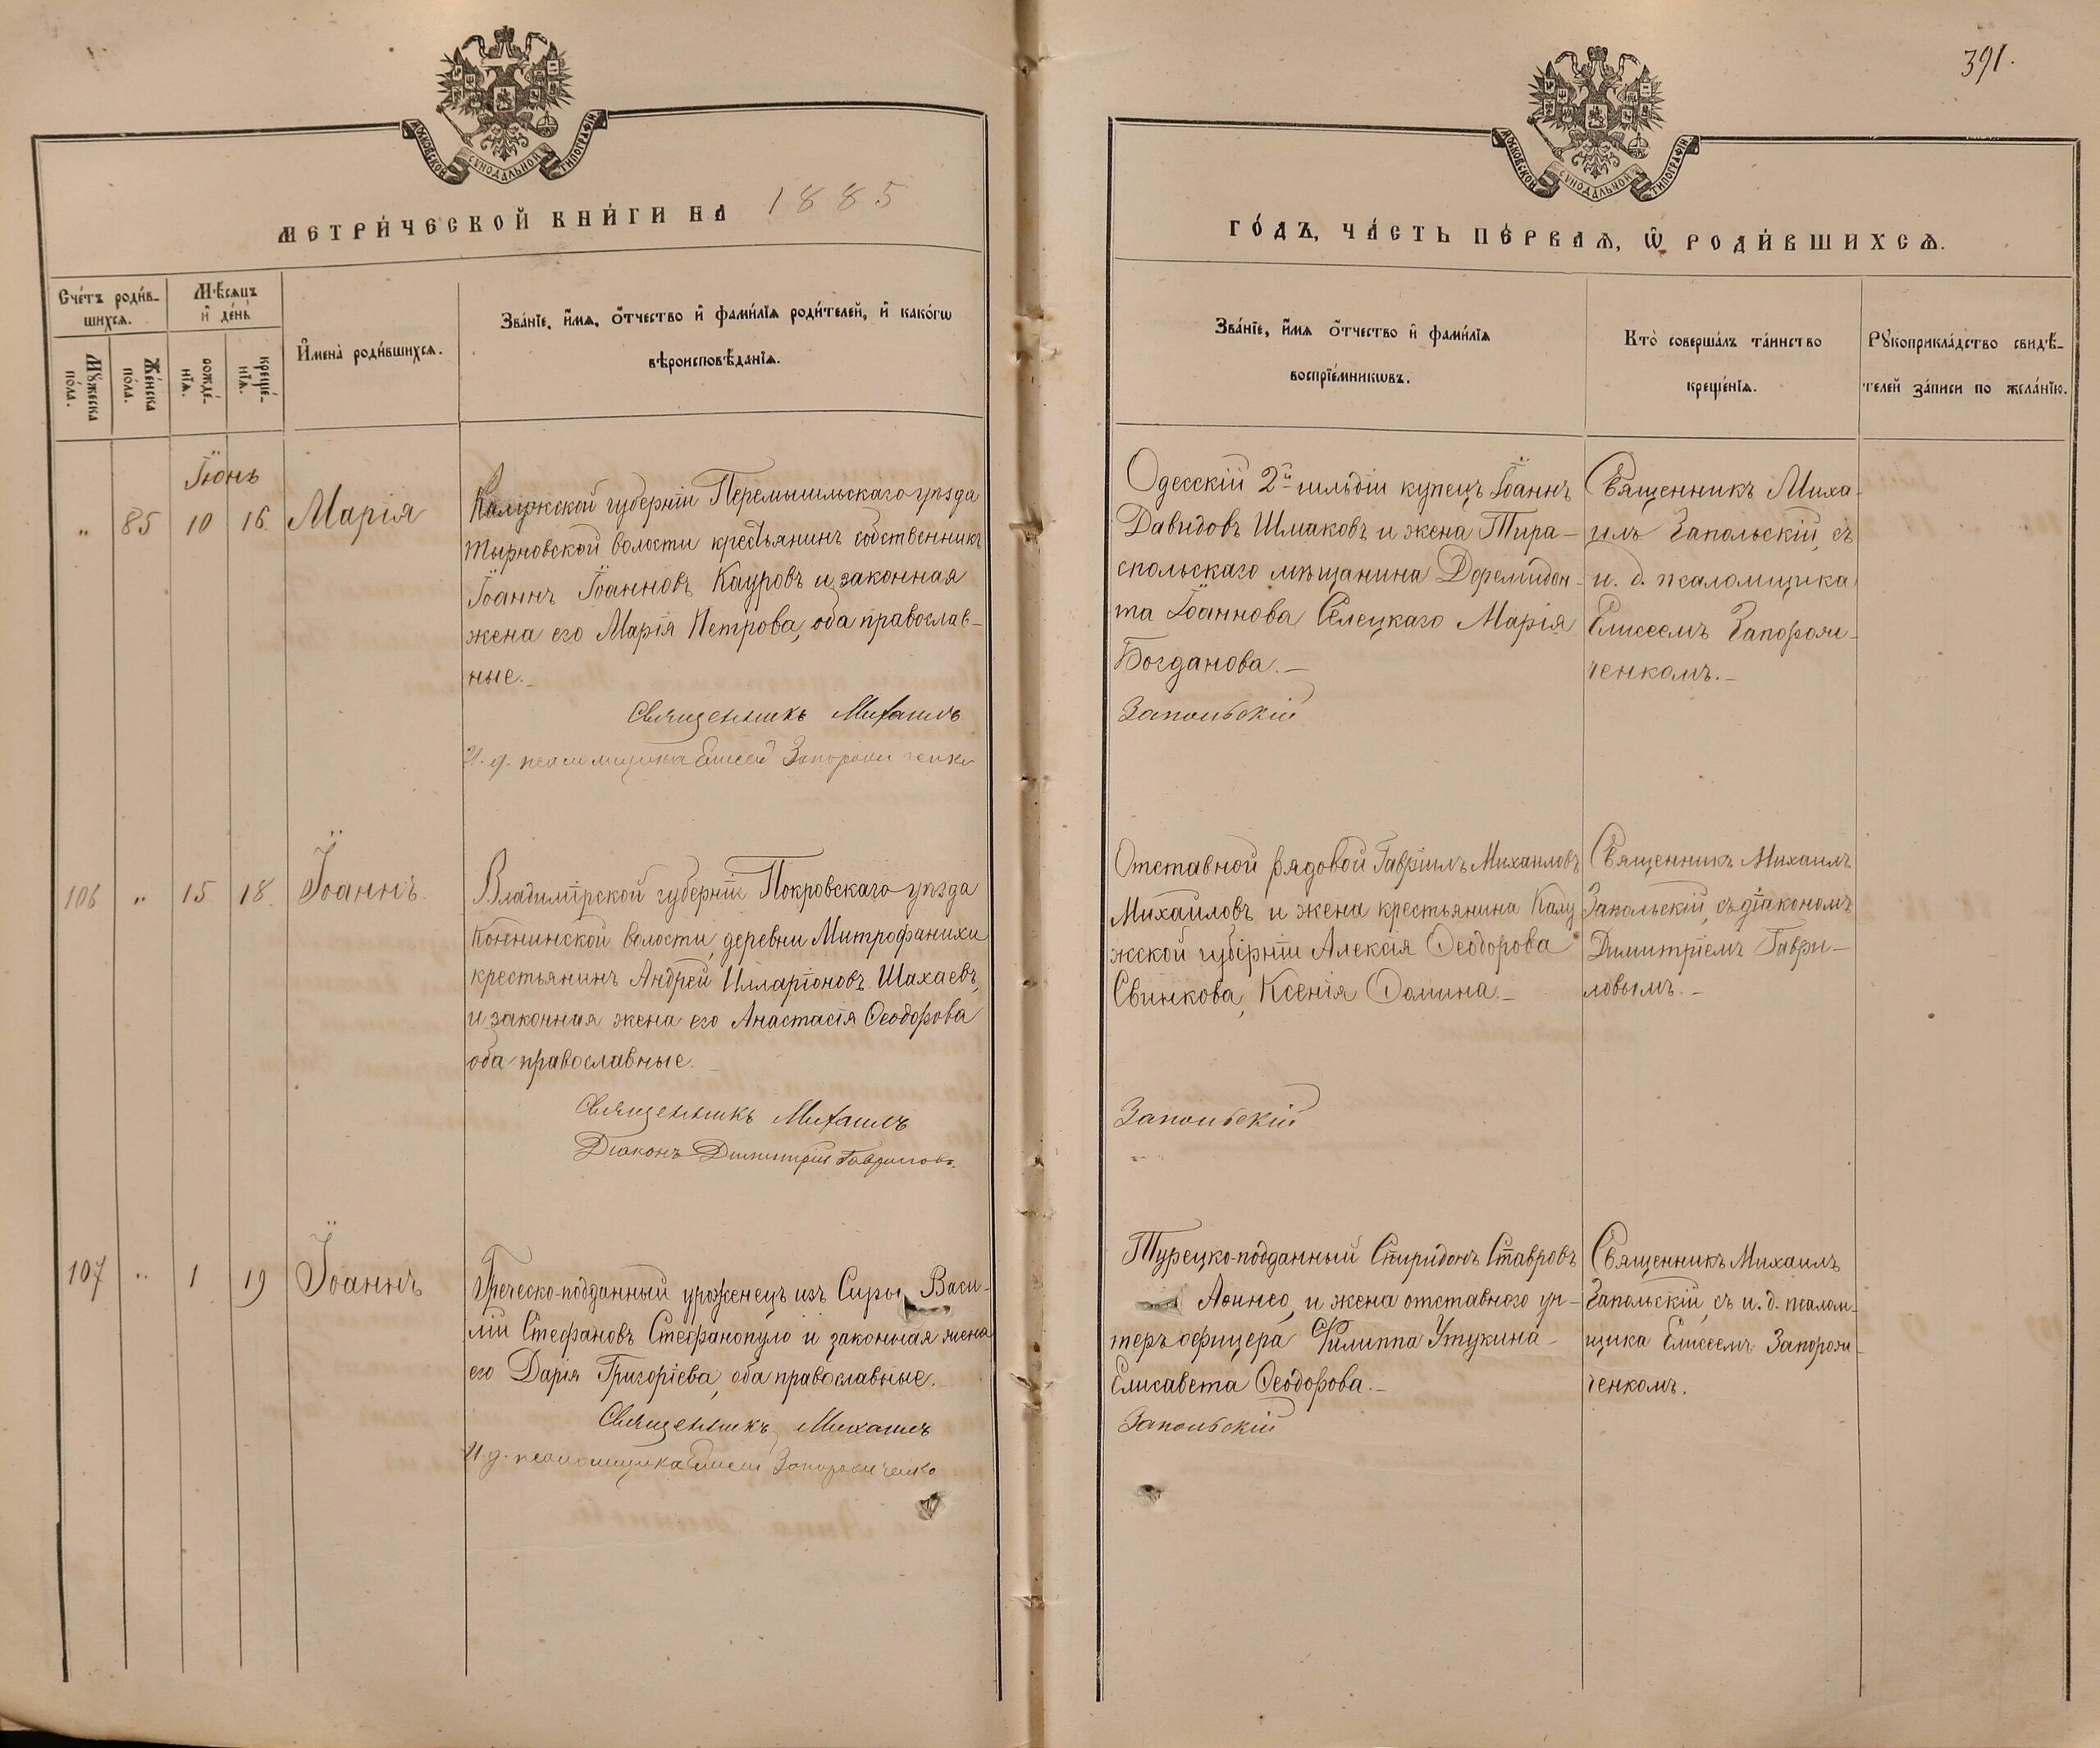 391.
МОСКОВСКОЙ СУНОДАЛЬНОЙ ТИПОГРАФІИ
МОСКОВСКОЙ СУНОДАЛЬНОЙ ТИПОГРАФІИ
МЕТРИ́ЧЕСКОЙ КНИ́ГИ НА 1885
ГО́ДЪ, ЧА́СТЬ ПЕ́РВАѦ, Ѡ҆ РОДИ́ВШИХСѦ.
Сче́тъ роди́в-
шихсѧ.
Мꙋ́жеска по́ла.
Же́нска по́ла.
Мѣ́сѧцъ
и҆ де́нь
рожде́-
нїѧ.
креще́-
нїѧ.
И҆мена̀ роди́вшихсѧ.
Зва́нїе, и҆́мѧ, о҆́тчество и҆ фами́лїѧ роди́телей, и҆ како́гѡ
вѣроисповѣ́данїѧ.
Зва́нїе, и҆́мѧ о҆́тчество и҆ фами́лїѧ
воспрїе́мникѡвъ.
Кто̀ соверша́лъ та́инство
креще́нїѧ.
Рꙋкоприкла́дство свидѣ́-
телей за́писи по жела́нїю.
Іюнь
„ 85 10 16. Марія
Калужской губерніи Перемышльскаго уѣзда
Тырновской волости крестьянинъ собственникъ
Іоаннъ Іоанновъ Кауровъ и законная
жена его Марія Петрова, оба православ-
ные.
Священникъ Михаилъ
И. д. псаломщика Елисей Запорожченко
Одесскій 2й гильдіи купецъ Іоаннъ
Давидовъ Шмаковъ и жена Тира-
спольскаго мѣщанина Дормидон-
та Іоаннова Селецкаго Марія
Богданова.
Запольскій
Священникъ Миха-
илъ Запольскій, съ
и. д. псаломщика
Елисеемъ Запорож-
ченкомъ.
106 „ 15 18. Іоаннъ.
Владимірской губерніи Покровскаго уѣзда
волости, деревни Митрофанихи
крестьянинъ Андрей Илларіоновъ Шахаевъ,
и законная жена его Анастасія Ѳеодорова
оба православные.
Священникъ Михаилъ
Діаконъ Димитрій Гавриловъ.
Отставной рядовой Гавріилъ Михаиловъ
Михаиловъ и жена крестьянина Калу
жской губерніи Алексія Ѳеодорова
Свинкова, Ксенія Ѳомина.
Запольскій
Священникъ Михаилъ
Запольскій, съ діакономъ
Димитріемъ Гаври-
ловымъ.
107 „ 1 19 Іоаннъ
Греческо-подданный уроженецъ изъ Сиры Васи-
лій Стефановъ Стефанопуло и законная жена
его Дарія Григоріева, оба православные.
Священникъ Михаилъ
И. д. псаломщика Елисей Запорожченко
Турецко-подданный Спиридонъ Ставровъ
и жена отставного ун-
теръ офицера Филиппа Утукина
Елисавета Ѳеодорова.
Запольскій
Священникъ Михаилъ
Запольскій, съ и. д. псалом-
щика Елисеемъ Запорож-
ченкомъ.